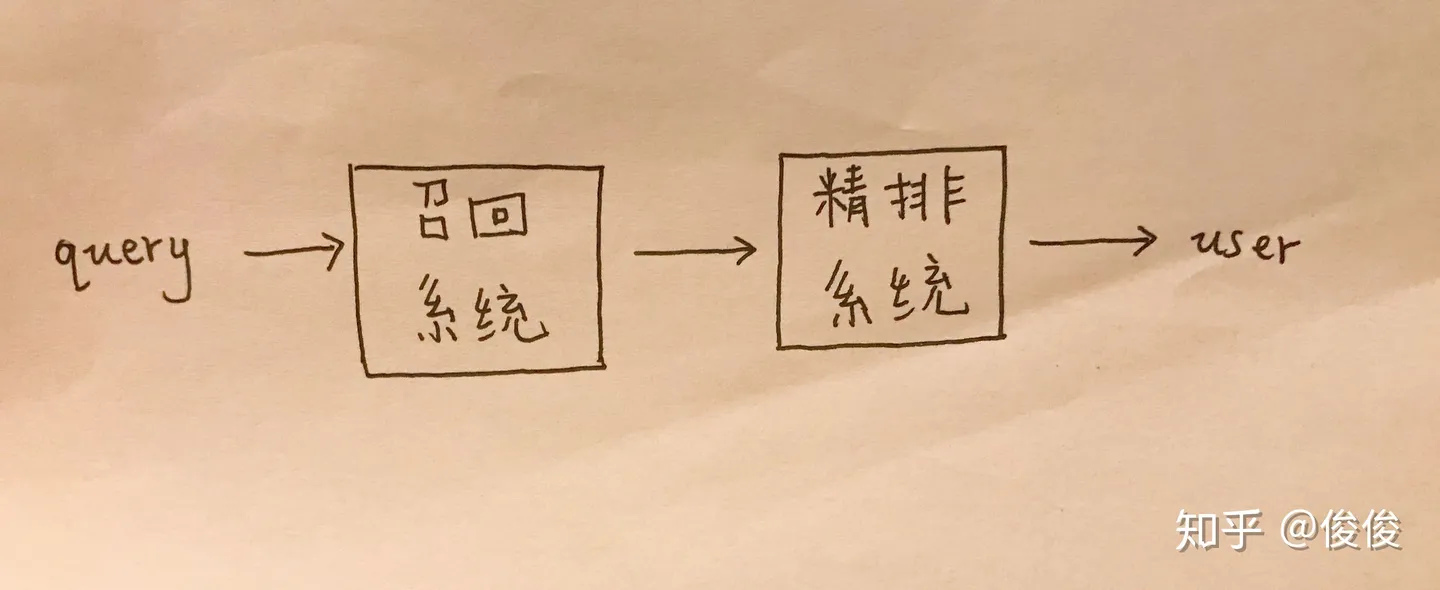 query
召回
系统
精排
系统
user
知乎 @俊俊